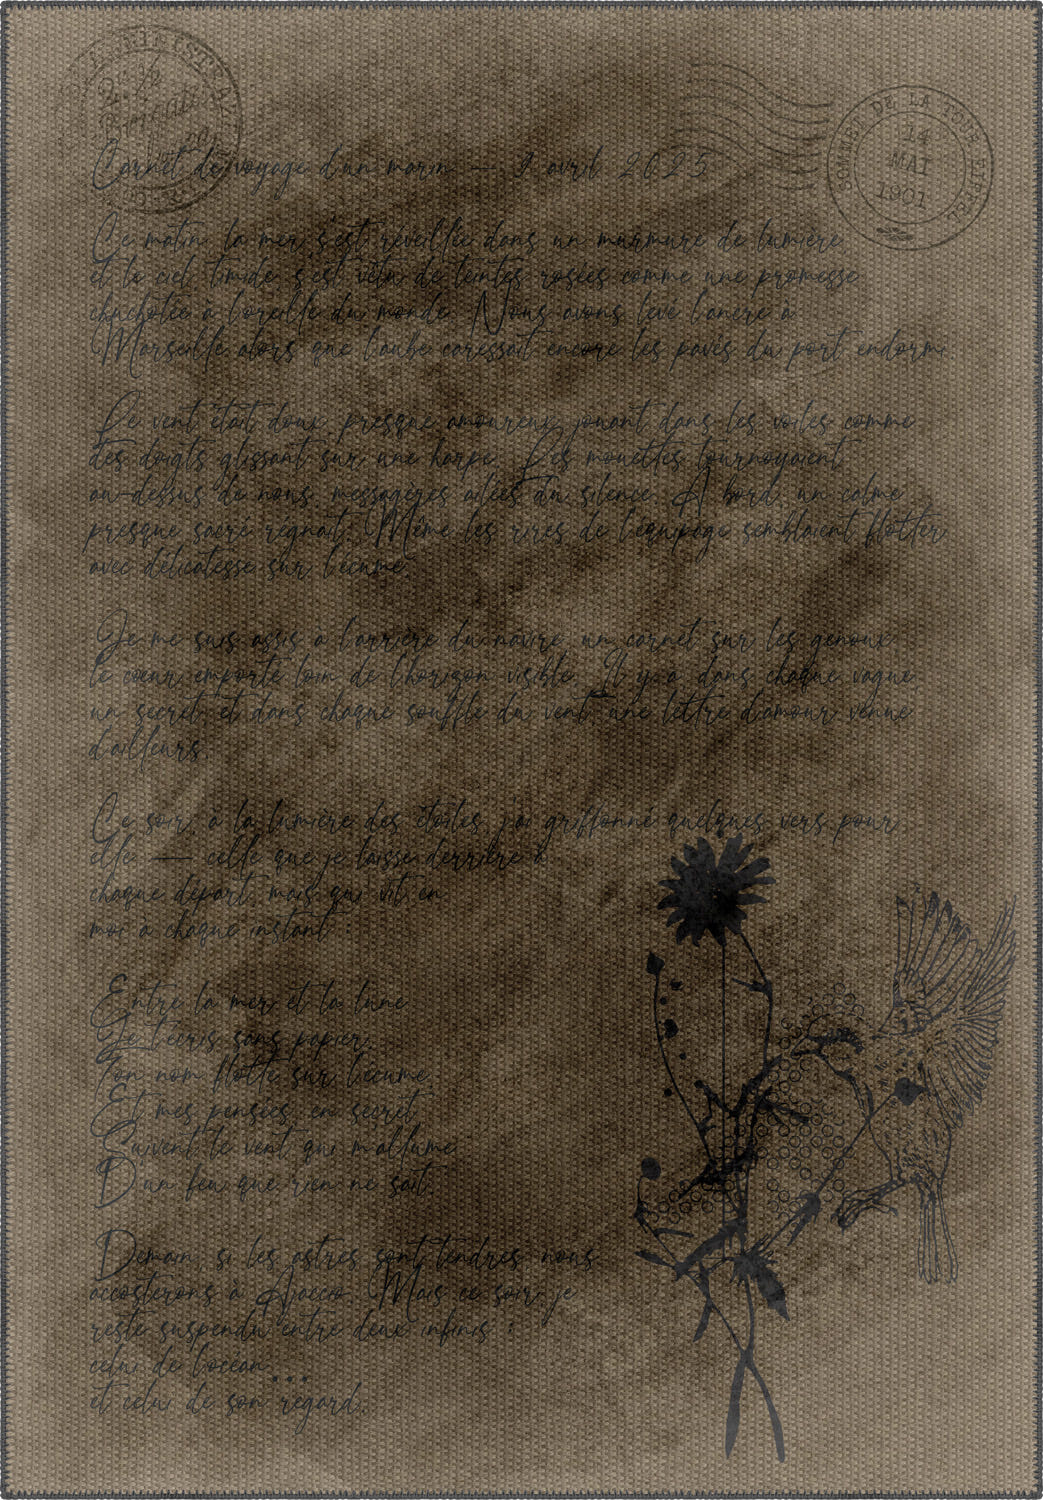 SOMMET DE LA TOUR EIFFEL
14
MAI
1901
Carnet de voyage d'un marin — 9 avril 2025
Ce matin, la mer s'est réveillée dans un murmure de lumière
et le ciel timide s'est vêtu de teintes rosées comme une promesse
chuchotée à l'oreille du monde. Nous avons levé l'ancre à
Marseille alors que l'aube caressait encore les pavés du port endorm
Le vent était doux, presque amoureux, jouant dans les voiles comme
des doigts glissant sur une harpe. Les mouettes tournoyaient
au-dessus de nous, messagères ailées du silence. À bord, un calme
presque sacré régnait. Même les rires de l'équipage semblaient flotter
avec délicatesse sur l'écume
Je me suis assis à l'arrière du navire, un carnet sur les genoux
le cœur emporté loin de l'horizon visible. Il y a dans chaque vague
un secret et dans chaque souffle du vent, une lettre d'amour venue
d'ailleurs
Ce soir, à la lumière des étoiles, j'ai griffonné quelques vers pour
elle — celle que je laisse derrière à
chaque départ, mais qui vit en
moi à chaque instant :
Entre la mer et la lune
Je t'écris sans papier,
Ton nom flotte sur l'écume,
Et mes pensées, en secret,
Suivent le vent qui m'allume
D'un feu que rien ne sait.
Demain, si les astres sont tendres, nous
accosterons à Ajaccio. Mais ce soir, je
reste suspendu entre deux infinis :
celui de l'océan...
et celui de son regard.